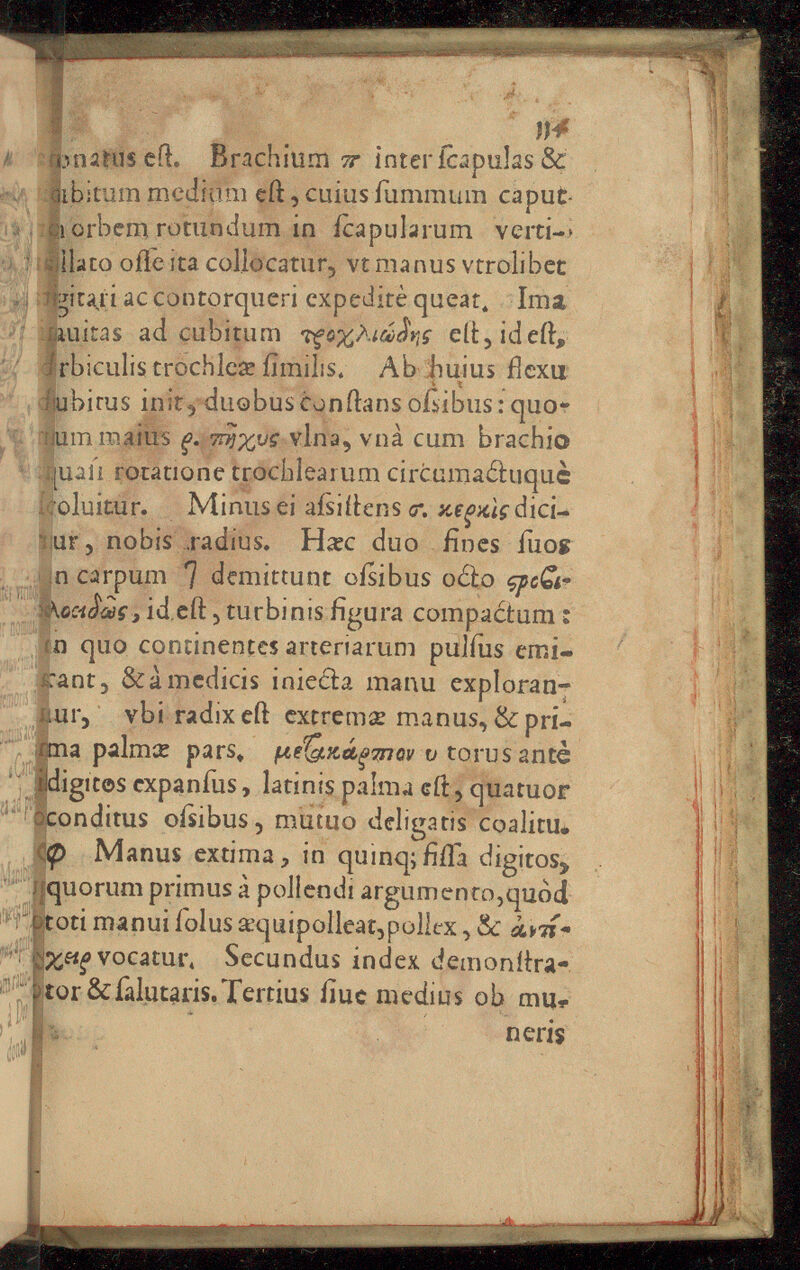 natus eſt. Brachium π inter ſcapulas &
cubitum medium eſt, cuius ſummum caput
orbem rotundum in ſcapularum verti-
oſſe ita collocatur, vt manus vtrolibet
ac contorqueri expeditè queat, Ima
ad cubitum τροχλιώδης eſt, id eſt,
orbiculis trochleæ ſimilis. Ab huius flexu
cubitus init, duobus conſtans oſsibus: quo-
rum maius ρ. πῆχυς vlna, vnà cum brachio
quaſi rotatione trochlearum circumactuquè
voluitur. Minus ei aſsiſtens σ. κερκὶς dici-
tur, nobis radius. Hæc duo fines ſuos
in carpum ⁊ demittunt oſsibus octo
id eſt, turbinis figura compactum:
in quo continentes arteriarum pulſus emi-
cant, & à medicis iniecta manu exploran-
tur, vbi radix eſt extremæ manus, & pri-
ma palmæ pars, μετακάρπιον υ torus antè
digitos expanſus, latinis palma eſt, quatuor
conditus oſsibus, mutuo deligatis coalitu.
φ Manus extima, in quinq; fiſſa digitos,
quorum primus à pollendi argumento, quòd
toti manui ſolus æquipolleat, pollex, & ἀντί-
χειρ vocatur, Secundus index demonſtra-
tor & ſalutaris. Tertius ſiue medius ob mu-
neris